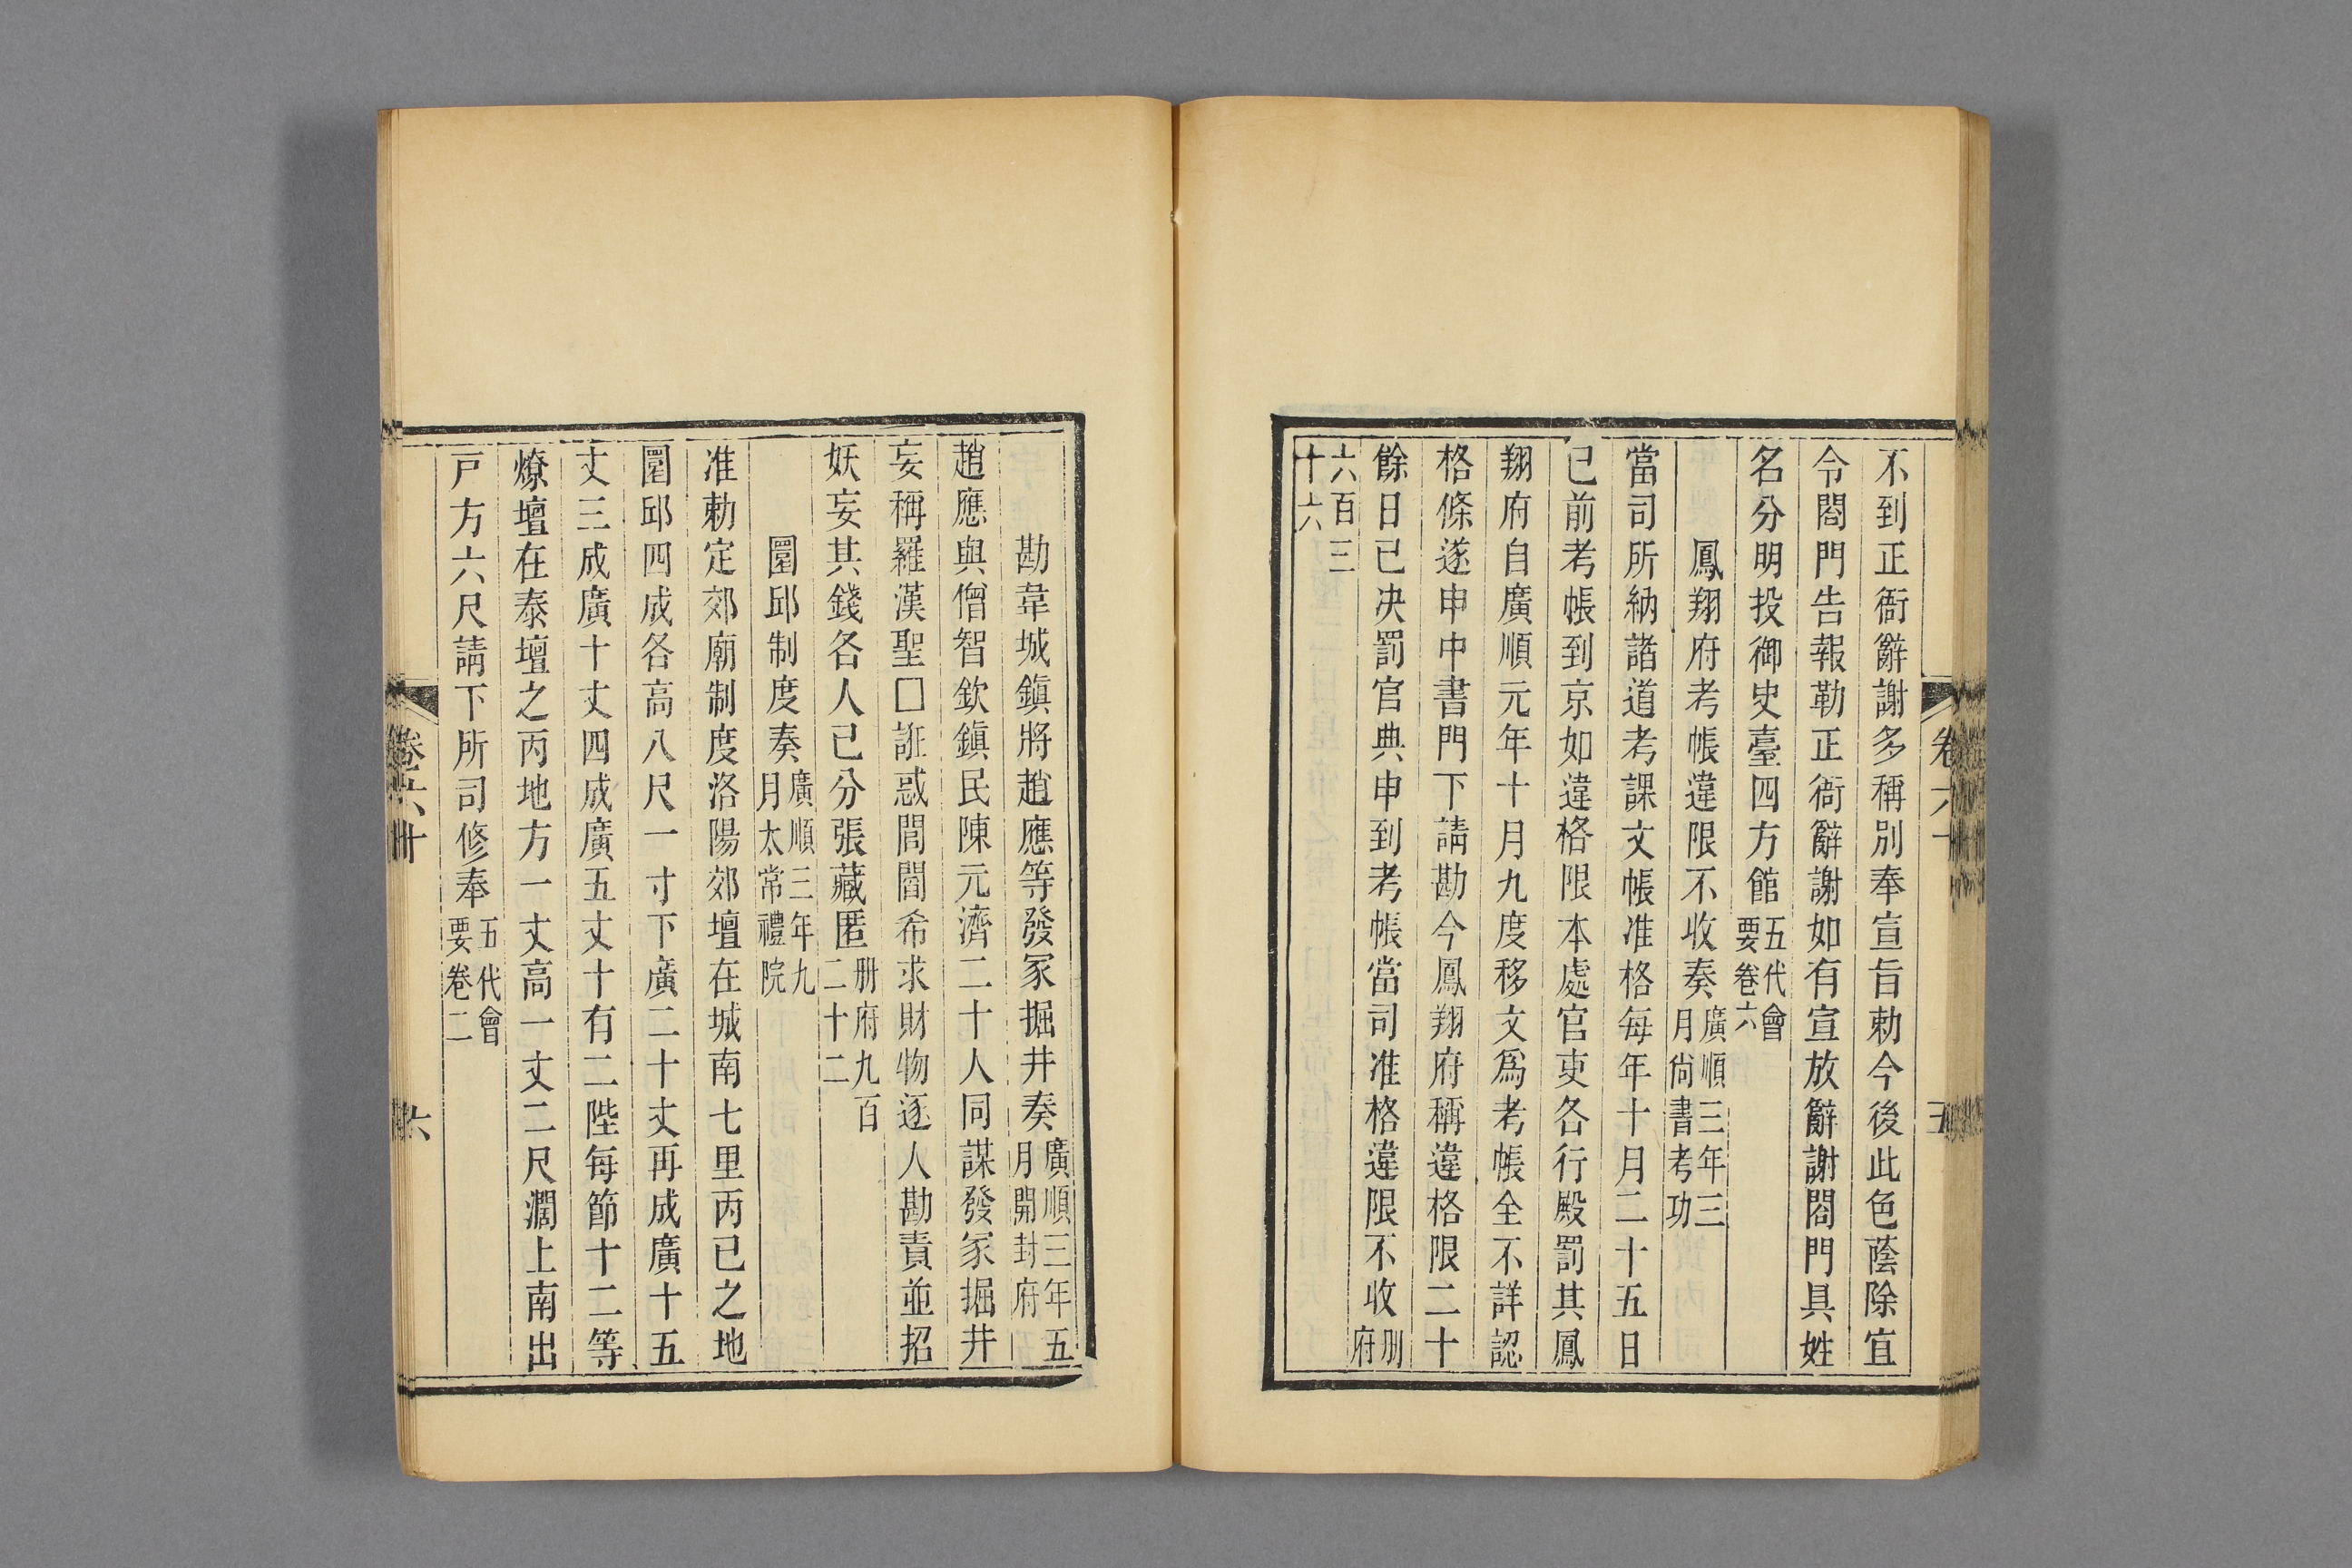 不到正衙辭謝多稱別奉宣旨勅今後此色蔭除宜
令閤門告報勒正衙辭謝如有宣放辭謝閤門具姓
名分明投御史臺四方館五代會要卷六
鳳翔府考帳違限不收奏廣順三年三月尙書考功
當司所納諸道考課文帳准格每年十月二十五日
已前考帳到京如違格限本處官吏各行殿罰其鳳
翔府自廣順元年十月九度移文爲考帳全不詳認
格條遂申中書門下請勘今鳳翔府稱違格限二十
餘日已决罰官典申到考帳當司准格違限不收册府
六百三十六
勘韋城鎭將趙應等發冢掘井奏廣順三年五月開封府
趙應與僧智欽鎭民陳元濟二十人同謀發冢掘井
妄稱羅漢聖□誑惑閭閻希求財物逐人勘責並招
妖妄其錢各人已分張藏匿册府九百二十二
圜邱制度奏廣順三年九月太常禮院
准勅定郊廟制度洛陽郊壇在城南七里丙已之地
圜邱四成各高八尺一寸下廣二十丈再成廣十五
丈三成廣十丈四成廣五丈十有二陛每節十二等
燎壇在泰壇之丙地方一丈高一丈二尺濶上南出
戸方六尺請下所司修奉五代會要卷二
卷六十
六